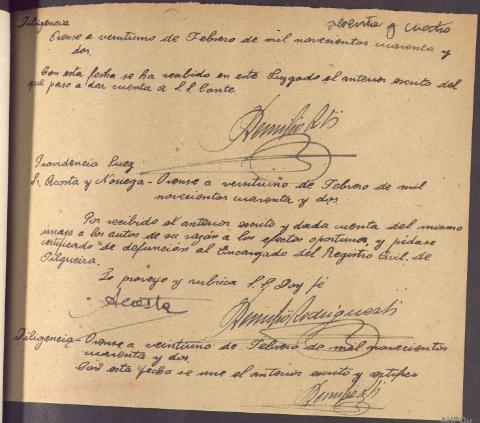 Diligencia
sesenta y cuatro
Orense a veintiuno de Febrero de mil novecientos cuarenta y
dos.
Con esta fecha se ha recibido en este Juzgado el anterior escrito del
que paso a dar cuenta a S.S. Conte.
Providencia Juez
Sr. Acosta y Noriega - Orense a veintiuno de Febrero de mil
novecientos cuarenta y dos.
Por recibido el anterior escrito y dada cuenta del mismo
únase a los autos de su razón a los efectos oportunos, y pídase
certificado de defunción al Encargado del Registro Civil de
Pilgueira.
Lo proveyo y rubrica S.S. Doy fé
Acosta
Remigio Rodriguez
Diligencia - Orense a veintiuno de Febrero de mil novecientos
cuarenta y dos.
Con esta fecha se une el anterior escrito y certifico